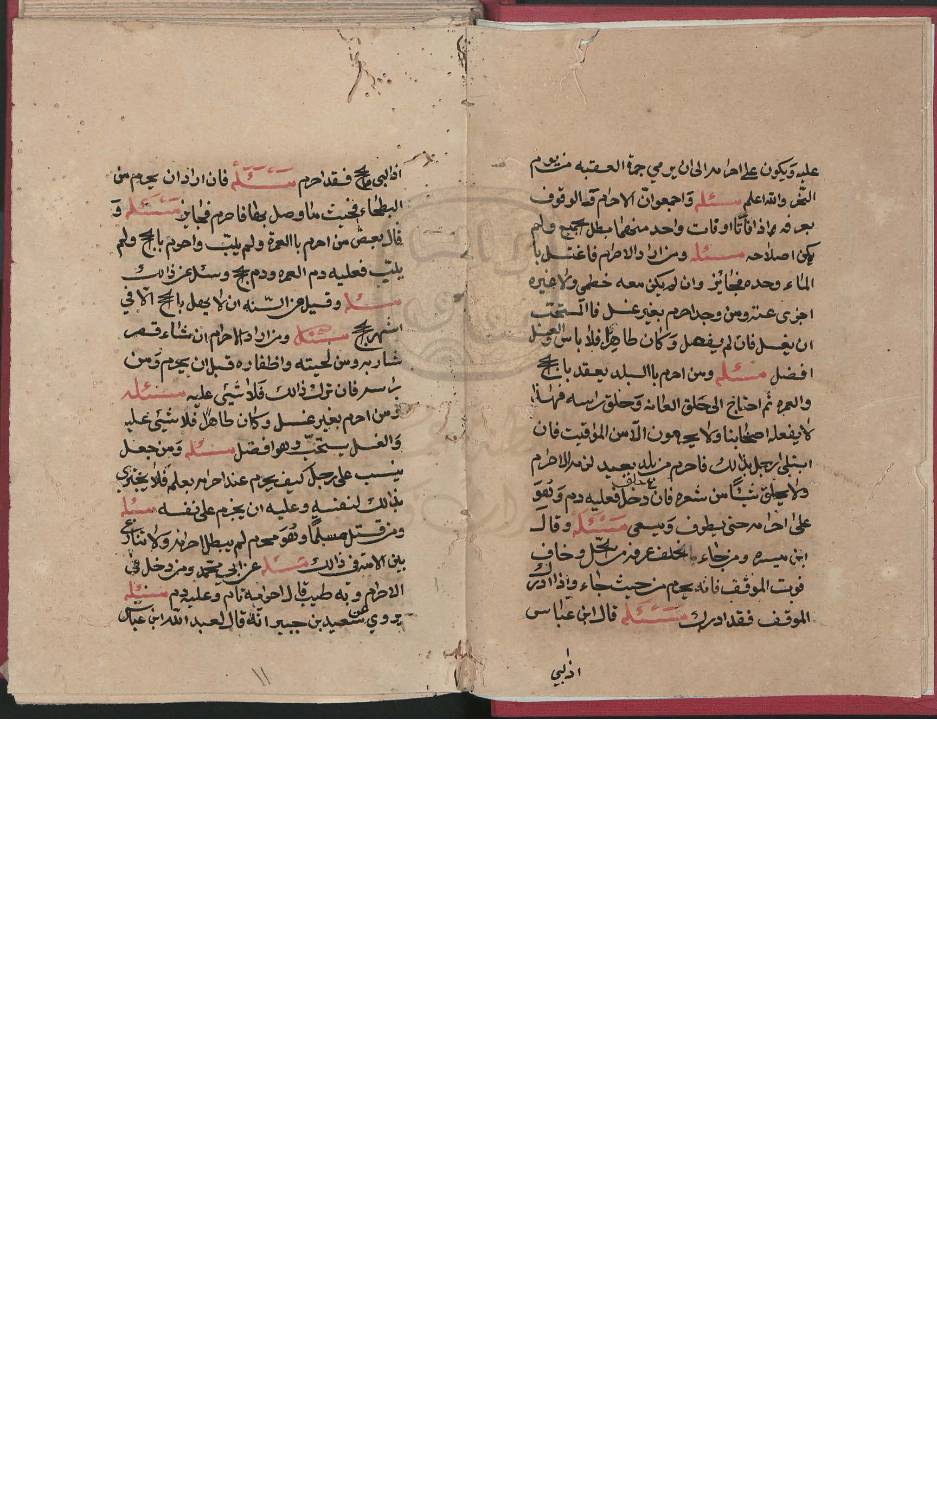 عليه ويكون على احرامه الى ان يرمي جمرة العقبه من يوم
النحر والله اعلم مسئله واجمعوا ان الاحرام قعالوقوف
بعرفه واذا فاتا اوفات واحد منهما بطل الحج ولم
يكن اصلاحه مسئله ومن اراد الاحرام فاغتسل با
الماء وحده فجائز وان لم يكن معه خطمي ولا غيره
اجزى عنه ومن وجد احرم بغير غسل فاالمستحب
ان يغسل فان لم يفعل وكان طاهرا فلا باس والغسل
افضل مسئله ومن احرم باالبلد يعقد بالحج
والعمره ثم احتاج الى حلق العانه وحلق راسه فهذا
لا يفعله اصحابنا ولا يحرمون الا من المواقيت فان
ابتلى رجل بذالك فاحرم من بلد بعيد لزمه الاحرام
ولا يحلق شيئا من شعره فان دخل فعليه دم وهو
على احرامه حتى يطوف ويسعى مسئله وقال
ابن ميسره ومن جاء من نخل وخاف
فوت الموقف فانه يحرم من حيث جاء واذا ادرك
الموقف فقد ادرك مسئله قال ابن عباس
اذ لبي
اذ لبى بالحج فقد احرم مسئله فان اراد ان يحرم من
البطحاء فحيث ما وصل بطافا حرم فجايز مسئله و
قال بعض من احرم باالعمرة ولم يلب واحرم بالحج ولم
يلب فعليه دم العمره ودم الحج وسئل عن ذالك
مسئله وقيل من السنه ان لا يهل بالحج الا في
اشهر الحج مسئله ومن اراد الاحرام ان شاء قصر
شاربه ومن لحيته واظفاره قبل ان يحرم ومن
راسه فان ترك ذالك فلا شيئ عليه مسئله
ومن احرم بغير غسل وكان طاهرا فلا شيئ عليه
والغسل يستحب وهو افضل مسئله ومن جعل
ينسب على رجل كيف يحرم عند احرامه يعلمه فلا يجزي
بذالك لنفسه وعليه ان يحرم على نفسه مسئله
ومن قتل مسلما وهو محرم لم يبطل احرامه ولا تنازع
بين الامه في ذالك مسئله عن ابي محمد ومن دخل في
الاحرام وبه طيب قال احرامه تام وعليه دم مسئله
يروي عن سعيد بن جبير انه قال لعبد الله ابن عباس
١١